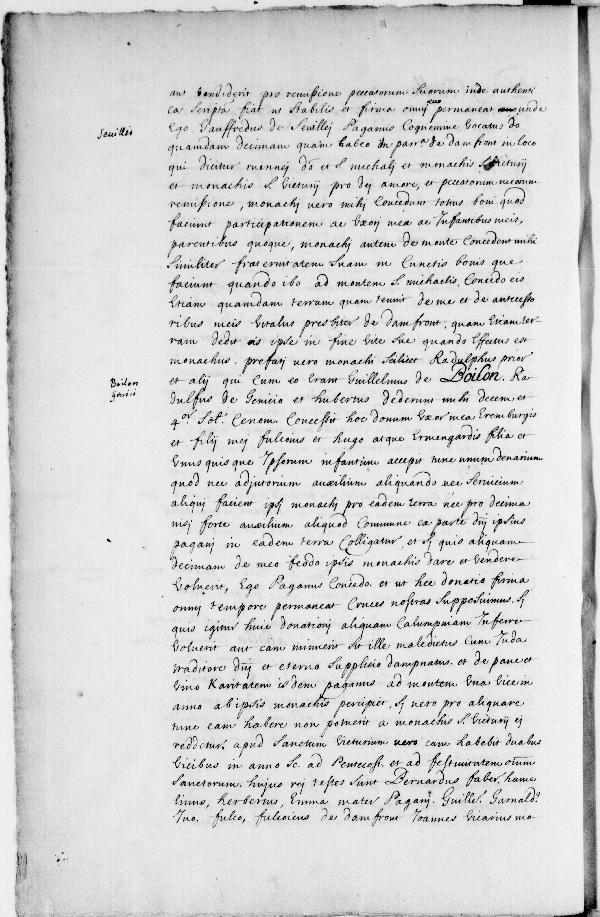 aut vendiderit pro remissione peccatorum suorum inde authenti
ca scripta fiat ut stabilis et firma omni evo permeaneat unde
Seuilleis
Ego Gauffredus de Seuillej Paganus Coquemine vocatus do
quamdam decimam quam habeo in parr.ª de damfront in loco
qui dicitur do et S. michalj et monachis S. Victurij
et monachis S. Victurij pro dej amore, et peccatorum meorum
remissione, monachj vero mihj Concedunt totius boni quod
faciunt participationem ac Vxorj mea ac Infantibus meis,
parentibus quoque, monachj autem de monte Concedent mihi
Similiter fraternitatem Suam in Cunctis bonis que
faciunt quando ibo ad montem S. michaelis, Concedo eis
Etiam quamdam terram quam tenuit de me et de antecesso
ribus meis Vitalus presbiter de damfront, quam Etiam ter-
ram dedit eis ipse in fine Vite sue quando Effectus est
monachus. prefatj vero monachi Scilicet Radulphus prior
Boilon
Genicii
et alij qui Cum eo Erant Guillelmus de Boilon. Ra
dulfus de Genicio et hubertus dederunt mihi decem et
4.or Sol. Cenom. Concessit hoc donum Vxor mea Eremburgis
et filij mej fulcoius et hugo atque Ermengardis filia et
Vnus quisque Ipsorum infantium accepit tunc unum denarium
quod nec adjutorium auxilium aliquando nec Servicium
aliquj facient ipsj monachj pro eadem terra nec pro decima
nisj forte auxilium aliquod Commune ea parte dnj ipsius
paganj in eadem terra Colligatur, et Sj quis aliquam
decimam de meo feddo ipsis monachis dare et Vendere
Voluerit, Ego Paganus Concedo. et ut hec donatio firma
omnj tempore permaneat Cruces nostras Supposuimus. Sj
quis igitur huic donationj aliquam Calumpniam Inferre
Voluerit aut eam minuerit Sit ille maledictus Cum Juda
traditore dnj et eterno Supplicio dampnatus. et de pane et
Vino Karitatem isdem paganus ad montem Vna Vice in
anno ab ipsis monachis percipiet, Sj vero pro aliquare
tunc eam habere non potuerit a monachis S. Victurij ej
reddetur, apud Sanctum Victurium vero eam habebit duabus
Vicibus in anno Sc. ad Pentecost. et ad festivitatem oium
Sanctorum. hujus rej testes Sunt Bernardus faber, hame
linus, herbertus, Emma mater Paganj. Guille. Garnald.
Ivo, fulco, fulcoicus de damfront Joannes Vicarius mo-